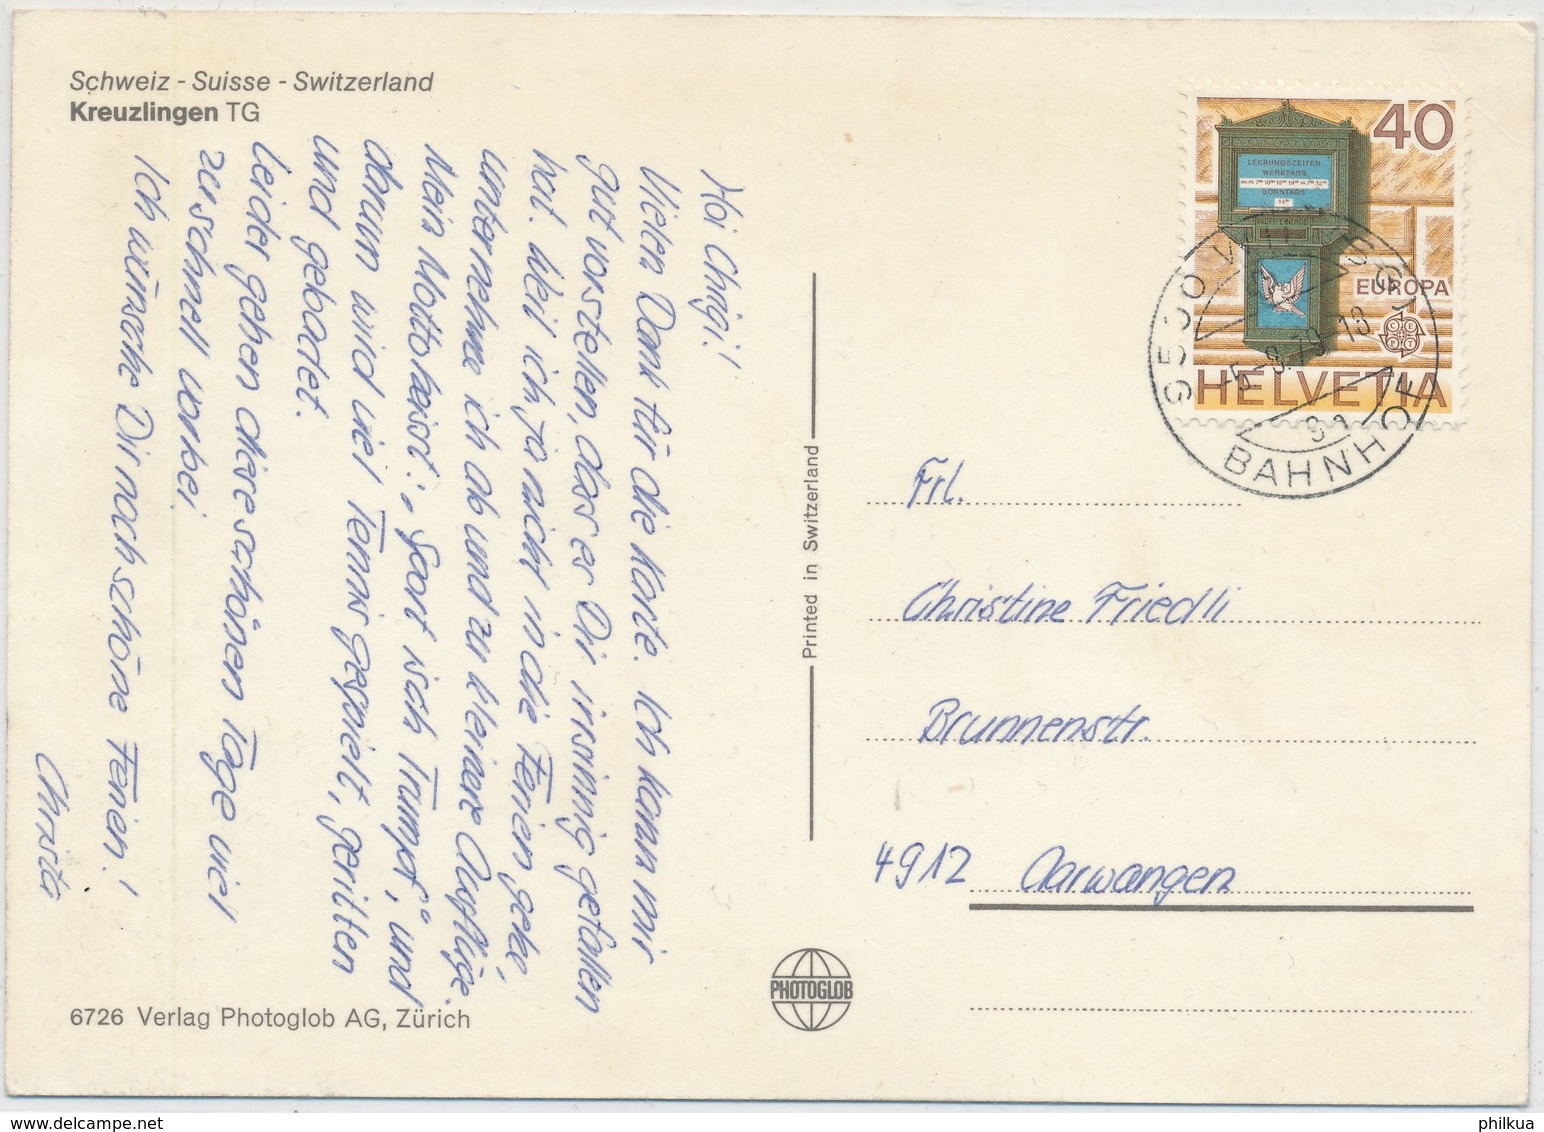 Schweiz - Suisse - Switzerland
Kreuzlingen TG
Hoi Chrigi!
Vielen Dank für die Karte. Ich kann mir
gut vorstellen, dass es Dir irrsinnig gefallen
hat. Weil ich ja nicht in die Ferien gehe,
unternehme ich ab und zu kleinere Ausflüge.
Mein Motto heisst: „Sport isch Trumpf", und
darum wird viel Tennis gespielt, geritten
und gebadet.
Leider gehen diese schönen Tage viel
zu schnell vorbei.
Ich wünsche Dir noch schöne Ferien!
Christa
6726 Verlag Photoglob AG, Zürich
Printed in Switzerland
PHOTOGLOB
40
LEERUNGSZEITEN
WERKTAGS
SONNTAGS
EUROPA
CEPT
HELVETIA
9500 WIL SG 1
-5.-9.79-18
BAHNHOF
Frl.
Christine Friedli
Brunnenstr.
4912 Aarwangen
www.delcampe.net
philkua